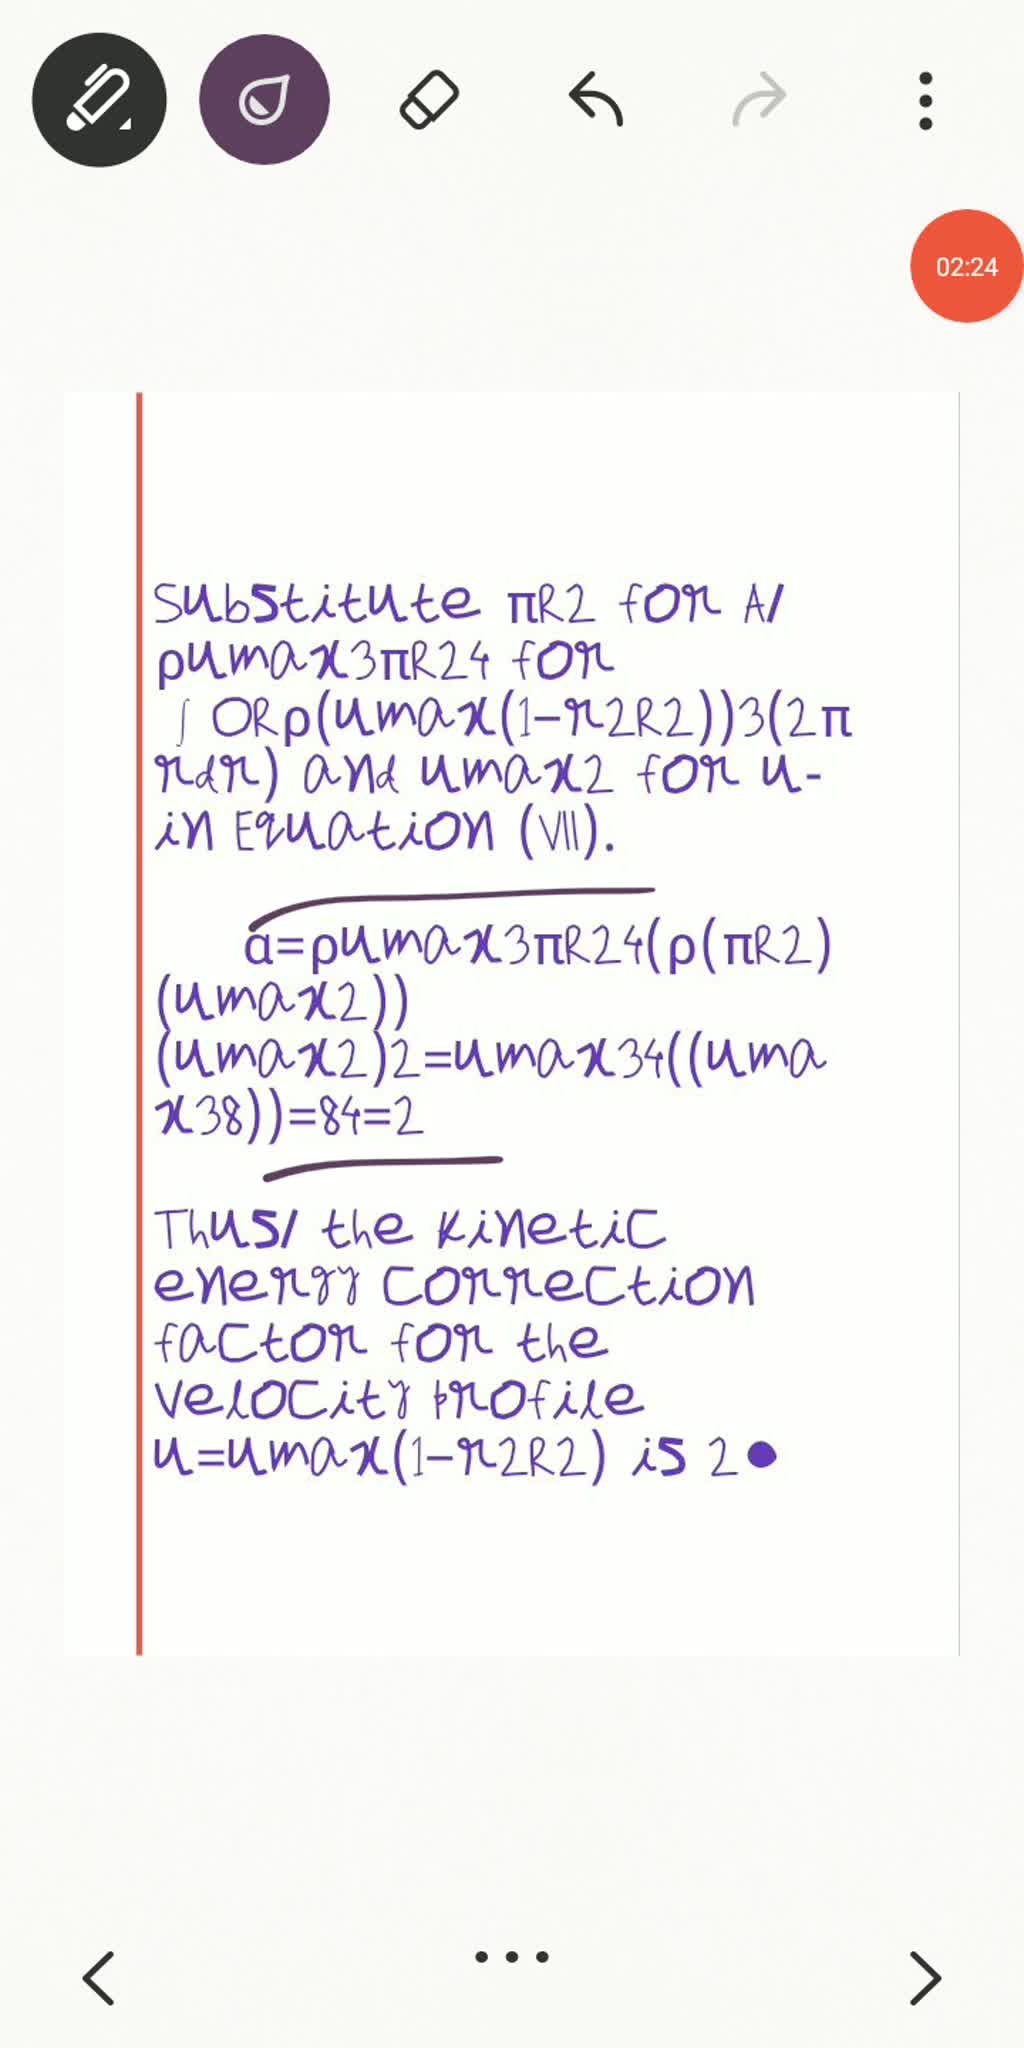 02:24
Substitute πR2 for A/
ρumax3πR24 for
∫ 0Rρ(umax(1-r2R2))3(2π
rdr) and umax2 for u-
in Equation (VII).
α=ρumax3πR24(ρ(πR2)
(umax2))
(umax2)2=umax34((uma
x38))=84=2
Thus/ the kinetic
energy correction
factor for the
velocity profile
u=umax(1-r2R2) is 2